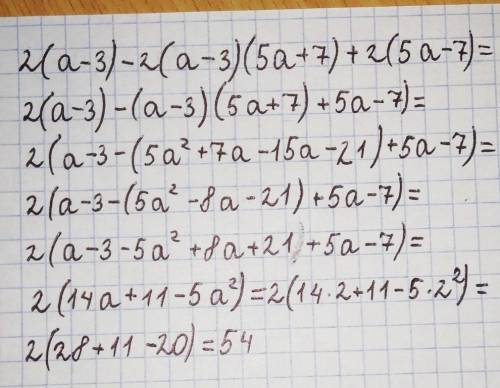 2(a-3)-2(a-3)(5a+7)+2(5a-7)=
2(a-3)-(a-3)(5a+7)+5a-7)=
2(a-3-(5a²+7a-15a-21)+5a-7)=
2(a-3-(5a²-8a-21)+5a-7)=
2(a-3-5a²+8a+21+5a-7)=
2(14a+11-5a²)=2(14·2+11-5·2²)=
2(28+11-20)=54